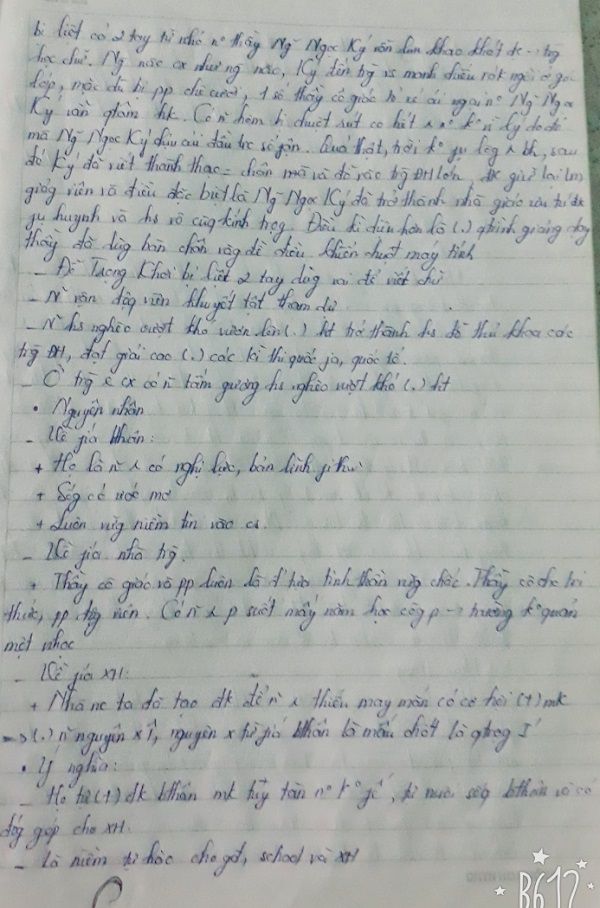 bị liệt cả 2 tay từ nhỏ nº thầy Ngỹ Ngọc Ký vẫn luôn khao khát đc → trg
học chữ. Ng nào cx như ng nào, Ký đến trg vs manh chiếu rơk ngồi ở góc
lớp, mặc dù bị pp chê cười, 1 số thầy cô giáo tỏ vẻ ái ngại nº Ngỹ Ngọc
Ký vẫn qtâm hk. Có n̄ hôm bị chuột rút co hết
mà Ngỹ Ngọc Ký chịu cúi đầu trc số fận. Quả thật, trời kº fụ lòg sau
đó Ký đã viết thành thạo = chân mà và đỗ vào trg ĐH lớn, đc giữ lại lm
giảng viên và điều đặc biệt là Ngỹ Ngọc Ký đã trở thành nhà giáo ưu tú đc
fụ huynh và hs vô cùg kính trọg. Điều kì diệu hơn là (.) qtrình giảng dạy
thầy đã dùg bàn chân vàg để điều khiển chuột máy tính
- Đỗ Trọng Khơi bị liệt 2 tay dùg vai để viết chữ
- N̄ vận độg viên khuyết tật tham dự
- N̄ hs nghèo vượt khó vươn lên (.) ht trở thành hs đỗ thủ khoa các
trg ĐH, đạt giải cao (.) các kì thi quốc ja, quốc tế.
- Ở trg e cx có n̄ tấm gương hs nghèo vượt khó (.) ht
• Nguyên nhân
- Về fía bthân:
+ Họ là n̄ x có nghị lực, bản lĩnh
+ Sốg có ước mơ
+ Luôn vữg niềm tin vào cs.
- Về fía nhà trg.
+ Thầy cô giáo và pp luôn là đ' tựa tinh thần vữg chắc. Thầy cô cho tri
thức, pp độg viên. Có n̄ x p suốt mấy năm học cõg p → trường kº quản
mệt nhọc
- Về fía XH:
+ Nhà nc ta đã tạo đk để n̄ x thiếu may mắn có cơ hội (+) mk
→ (.) n̄ nguyên x ấy, nguyên x từ fía bthân là mấu chốt là qtrọg I'
• Ý nghĩa:
- Họ tự (+) đk bthân mk tuy tàn nº kº fế, tự nuôi sốg bthân và có
đóg góp cho XH.
- Là niềm tự hào cho gđ, school và XH
B612